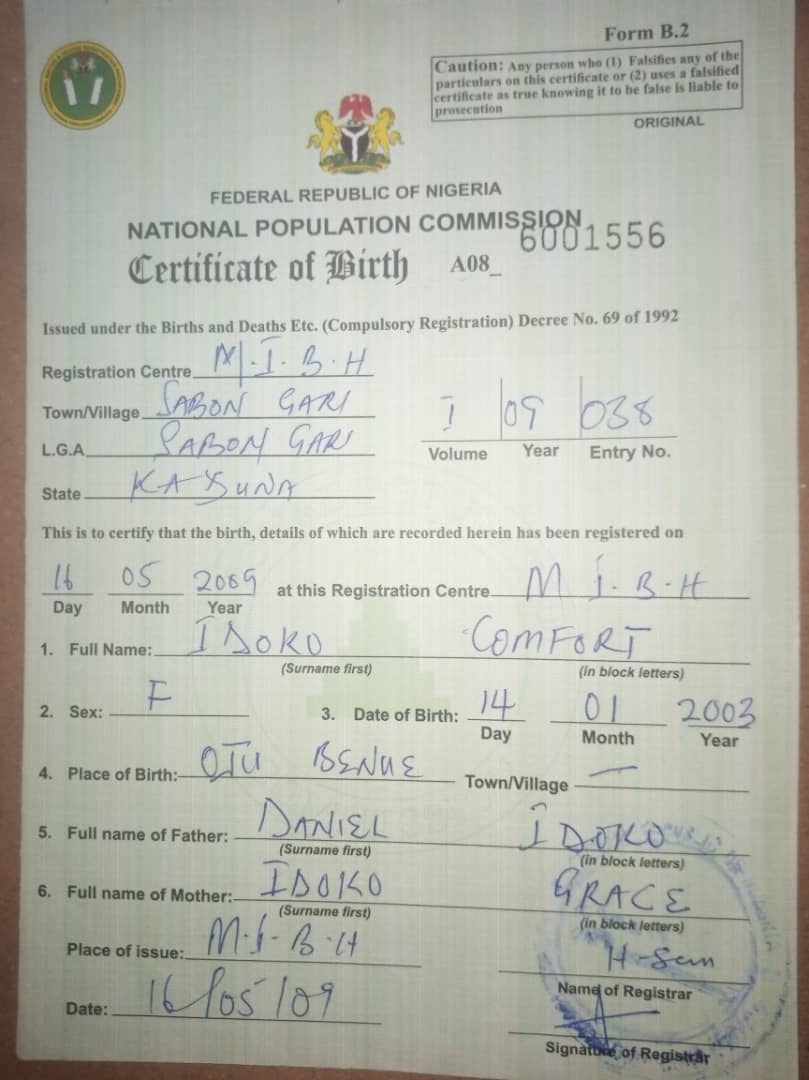 Form B.2
Caution: Any person who (1) Falsifies any of the
particulars on this certificate or (2) uses a falsified
certificate as true knowing it to be false is liable to
prosecution
ORIGINAL
FEDERAL REPUBLIC OF NIGERIA
NATIONAL POPULATION COMMISSION
6001556
Certificate of Birth A08_
Issued under the Births and Deaths Etc. (Compulsory Registration) Decree No. 69 of 1992
Registration Centre M.I.B.H
Town/Village SABON GARI
I 09 038
L.G.A SABON GARI
Volume Year Entry No.
State KADUNA
This is to certify that the birth, details of which are recorded herein has been registered on
16 05 2009 at this Registration Centre M.I.B.H
Day Month Year
1. Full Name: IDOKO COMFORT
(Surname first) (in block letters)
2. Sex: F 3. Date of Birth: 14 01 2003
Day Month Year
4. Place of Birth: OJU BENUE Town/Village —
5. Full name of Father: DANIEL IDOKO
(Surname first) (in block letters)
6. Full name of Mother: IDOKO GRACE
(Surname first) (in block letters)
Place of issue: M.I.B.H
H-Sam
Name of Registrar
Date: 16/05/09
Signature of Registrar